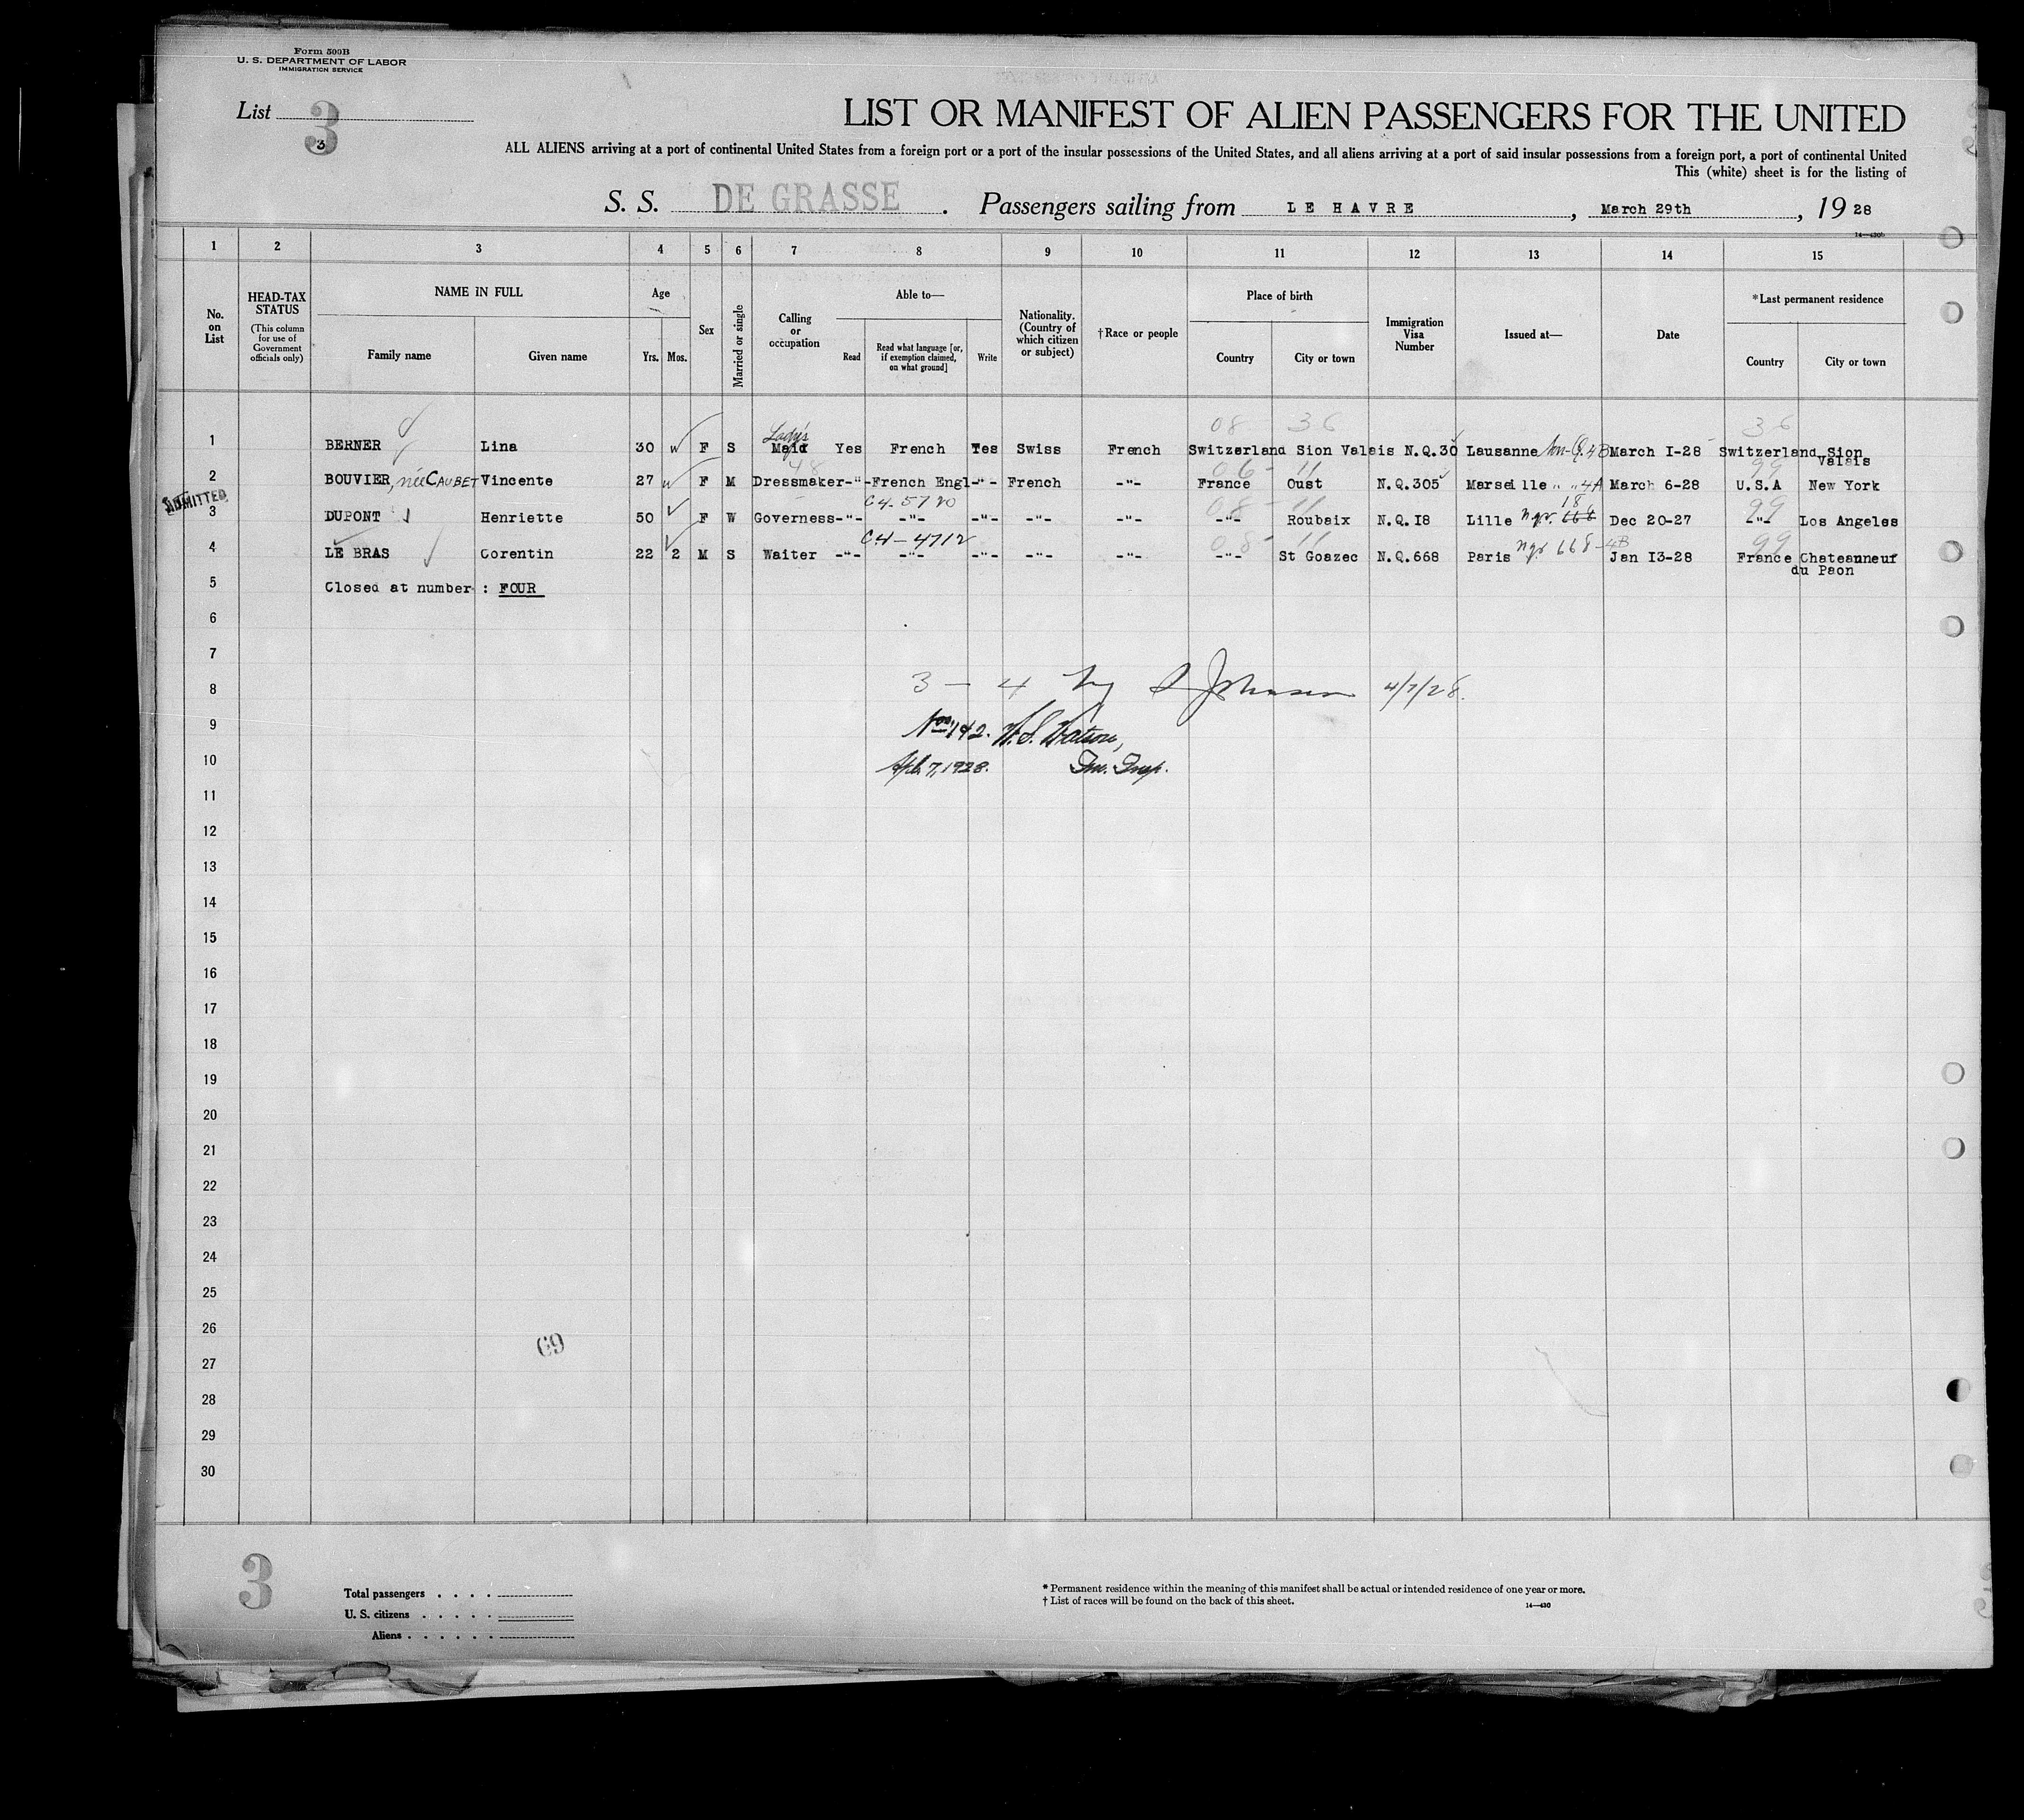 Form 500B
U. S. DEPARTMENT OF LABOR
IMMIGRATION SERVICE
List 3
3
LIST OR MANIFEST OF ALIEN PASSENGERS FOR THE UNITED
ALL ALIENS arriving at a port of continental United States from a foreign port or a port of the insular possessions of the United States, and all aliens arriving at a port of said insular possessions from a foreign port, a port of continental United
This (white) sheet is for the listing of
S. S. DE GRASSE . Passengers sailing from LE HAVRE , March 29th , 19 28
1 2 3 4 5 6 7 8 9 10 11 12 13 14 15
No. on List
HEAD-TAX STATUS
(This column for use of Government officials only)
NAME IN FULL
Family name Given name
Age
Yrs. Mos.
Sex
Married or single
Calling or occupation
Able to—
Read
Read what language [or, if exemption claimed, on what ground]
Write
Nationality. (Country of which citizen or subject)
†Race or people
Place of birth
Country City or town
Immigration Visa Number
Issued at—
Date
*Last permanent residence
Country City or town
08 36 36
Lady's
1 BERNER Lina 30 w F S Maid Yes French Yes Swiss French Switzerland Sion Valais N.Q.30 Lausanne 4B March I-28 Switzerland Sion
Valais
48 06 - 11 99
2 BOUVIER, née CAUBET Vincente 27 w F M Dressmaker -"- French Engl -"- French -"- France Oust N.Q.305 Marseille " " 4A March 6-28 U.S.A New York
ADMITTED
C4-5720 08 - 11 18 99
3 DUPONT Henriette 50 F W Governess -"- -"- -"- -"- -"- -"- Roubaix N.Q.I8 Lille nqv. 668 Dec 20-27 -"- Los Angeles
C4-4712 08 - 11 99
4 LE BRAS Corentin 22 2 M S Waiter -"- -"- -"- -"- -"- -"- St Goazec N.Q.668 Paris nqv 668-4B Jan I3-28 France Chateauneuf
du Paon
5 Closed at number : FOUR
6
7
8 3 - 4 by Johnson 4/7/28.
9 Nos 1+2. W. S. Watson,
10 Apl. 7, 1928. Im. Insp.
11
12
13
14
15
16
17
18
19
20
21
22
23
24
25
26
69
27
28
29
30
3
Total passengers . . . .
U. S. citizens . . . . .
Aliens . . . . . .
* Permanent residence within the meaning of this manifest shall be actual or intended residence of one year or more.
† List of races will be found on the back of this sheet.
14—430